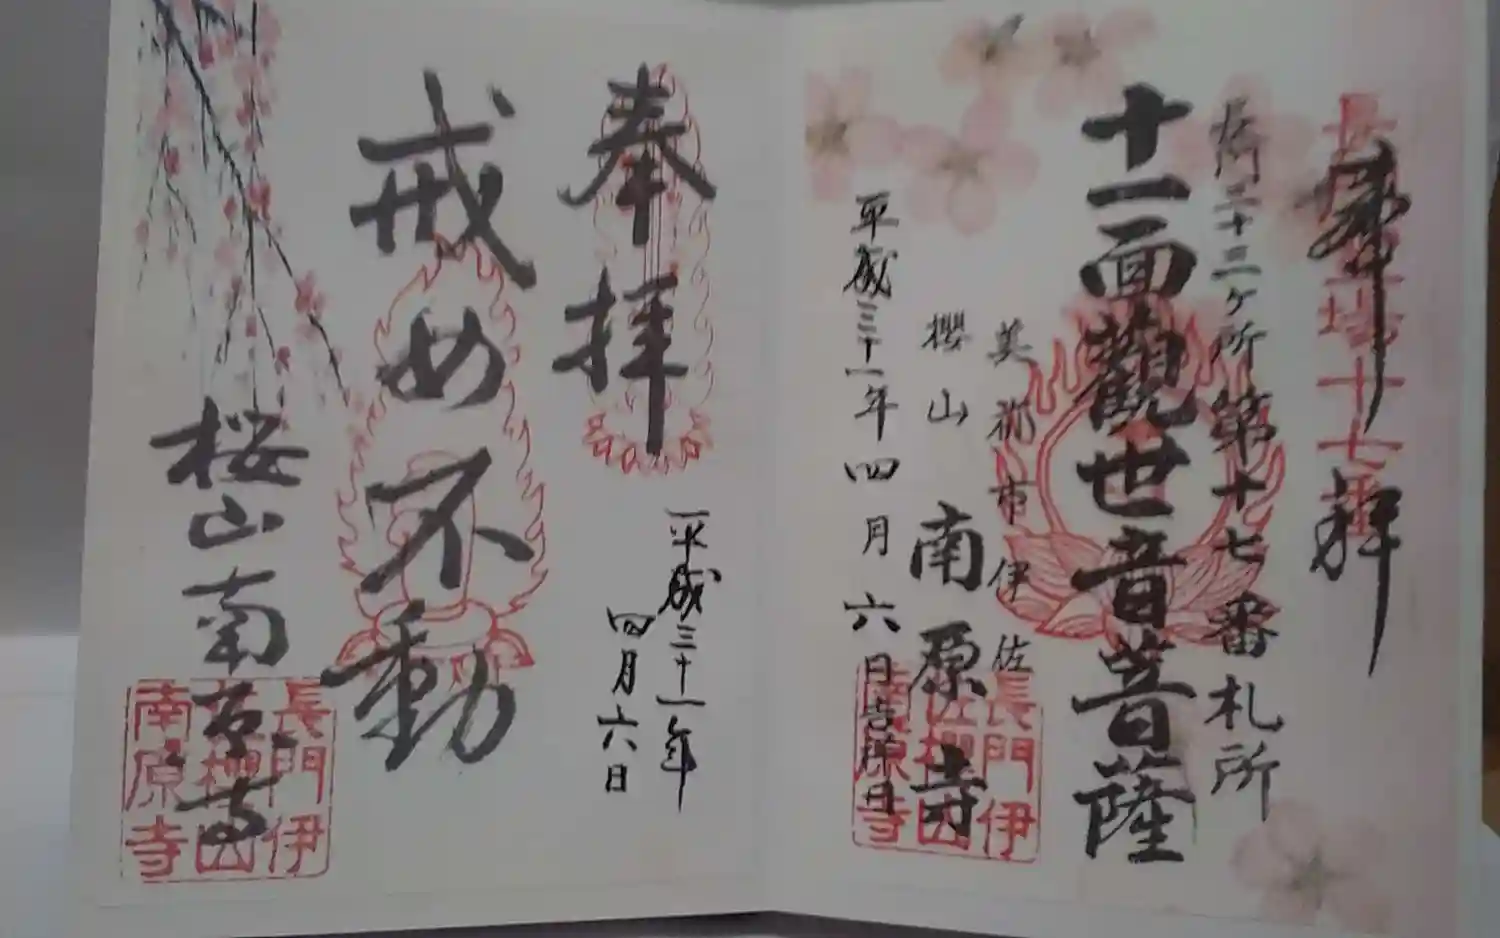 奉拝
長門三十三ケ所第十七番札所
十一面觀世音菩薩
美祢市伊佐
櫻山 南原寺
平成三十一年四月六日吉祥日
長門伊
佐櫻山
南原寺
奉拝
平成三十一年
四月六日
戒め不動
桜山南原寺
長門伊
佐櫻山
南原寺